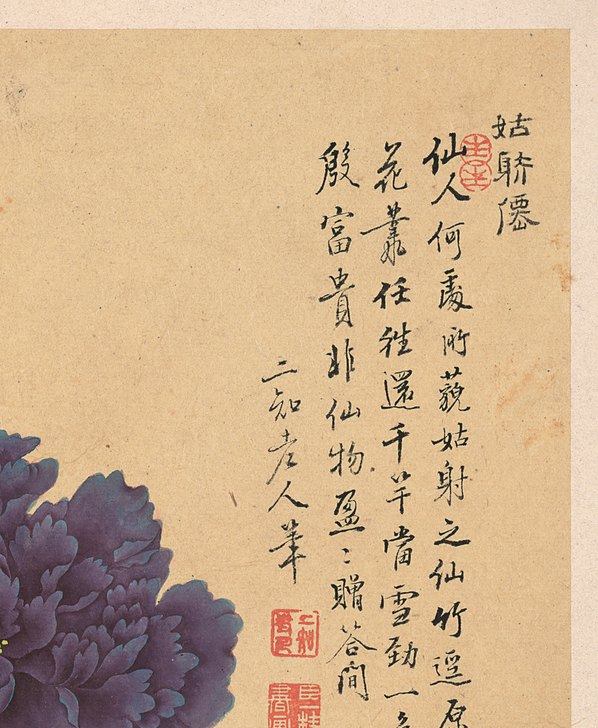 姑躲僊
仙人何處所藐姑射之仙竹逕原
花叢任往還千竿當雪勁一
殷富貴非仙物盈〻贈答間
二知老人華